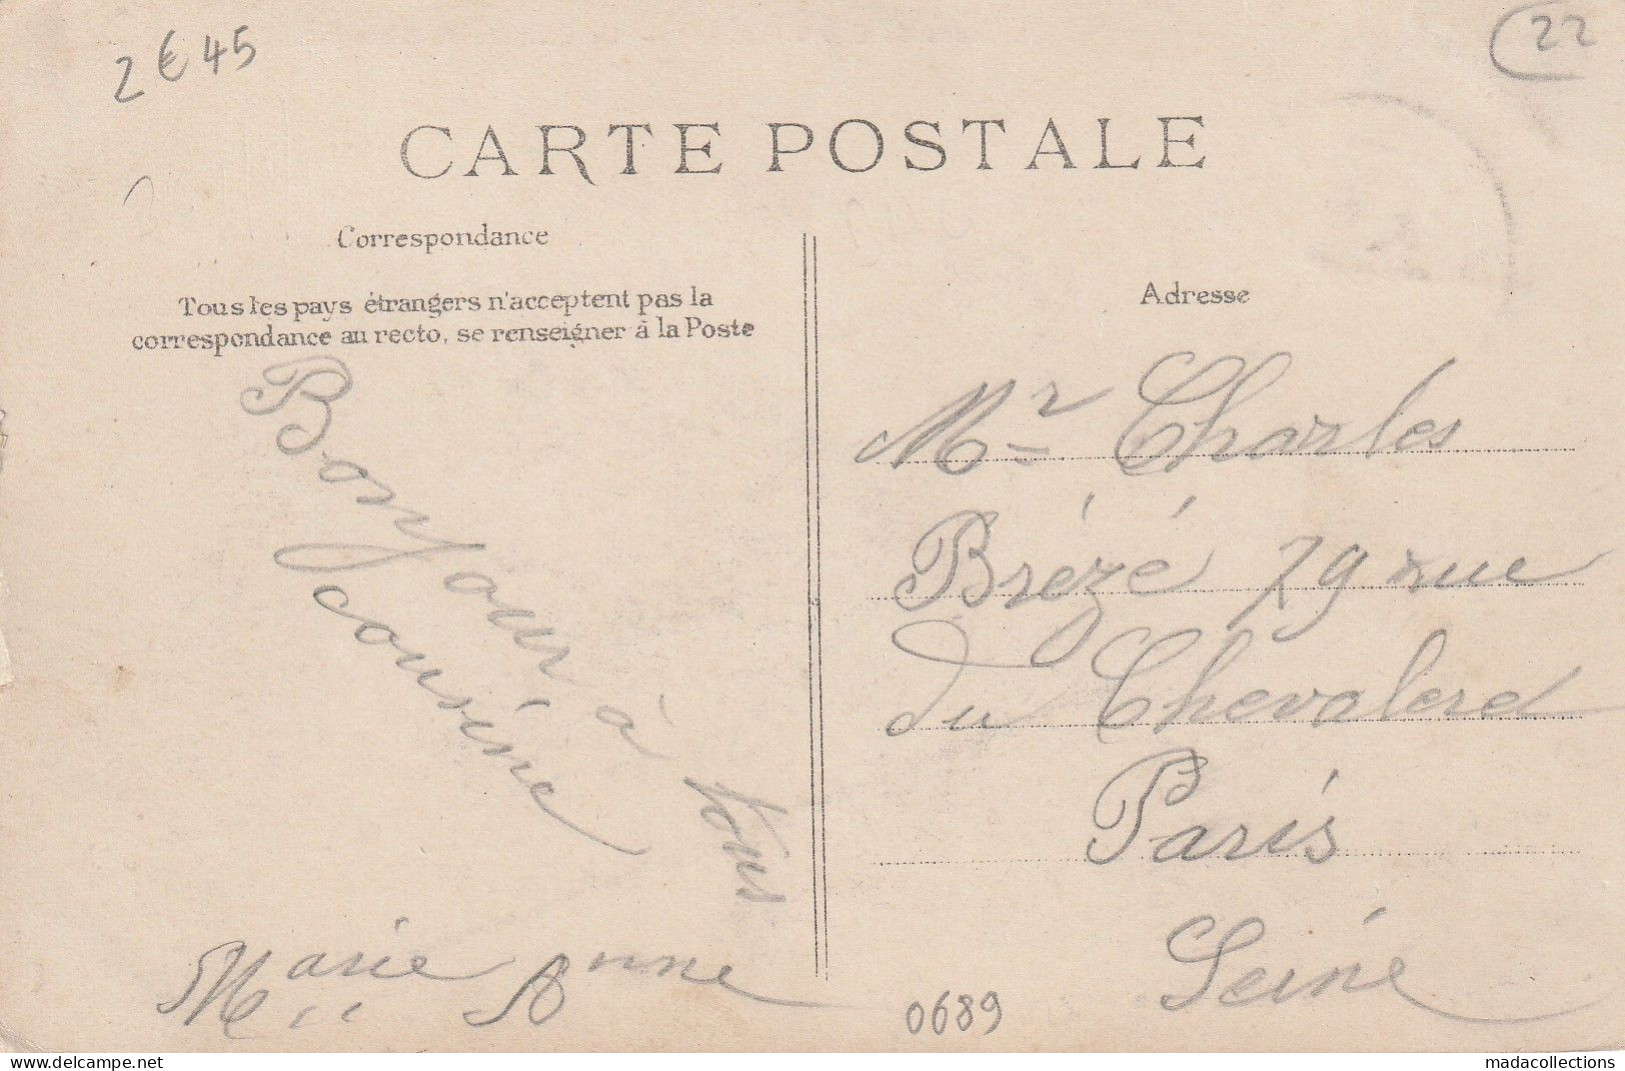 2€45
22
CARTE POSTALE
Correspondance
Tous les pays étrangers n'acceptent pas la
correspondance au recto, se renseigner à la Poste
Bonjour à tous
cousine
Marie Anne
Adresse
Mr Charles
Brézé 79 rue
du Chevaleret
Paris
Seine
0689
Delcampe.net
madacollections